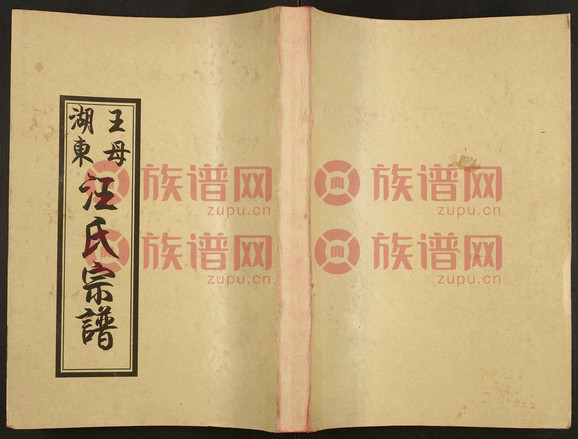 王母
湖東
汪氏宗譜
族谱网
zupu.cn
族谱网
zupu.cn
族谱网
zupu.cn
族谱网
zupu.cn